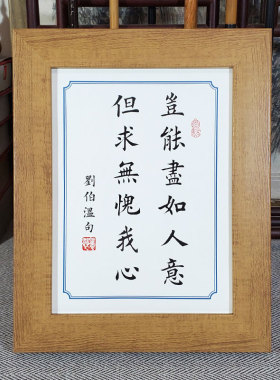 豈能盡如人意
但求無愧我心
劉伯溫句